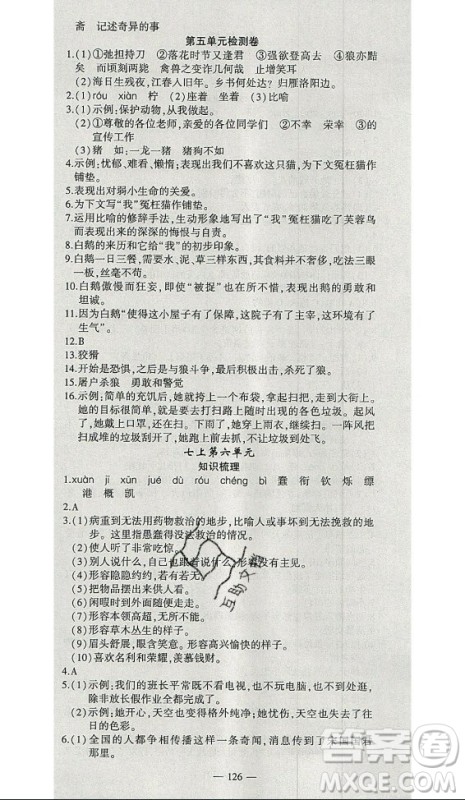 斋　记述奇异的事
第五单元检测卷
1.(1)①弛担持刀　②落花时节又逢君　③强欲登高去　④狼亦黠
矣　而顷刻两毙　禽兽之变诈几何哉　止增笑耳
(2)海日生残夜，江春入旧年。乡书何处达？归雁洛阳边。
2.(1)róu　xiàn　柠　(2)座着　坐着　(3)比喻
3.(1)示例：保护动物，从我做起。
(2)①尊敬的各位老师，亲爱的各位同学　②不幸　荣幸　③的
宣传工作
(3)猪　如：一龙一猪　猪狗不如
4.示例：忧郁、难看、懒惰；表现出我们不喜欢这只猫，为下文冤枉猫作
铺垫。
5.表现出对弱小生命的关爱。
6.为下文写“我”冤枉猫作铺垫。
7.运用比喻的修辞手法，生动形象地写出了“我”冤枉猫吃了芙蓉鸟
而表现出来的深深的悔恨与自责。
8.白鹅的来历和它给“我”的初步印象。
9.白鹅倔强固执，需要水、泥、草三样下饭，其食料并不奢侈；吃法三眼
一板，丝毫不苟。
10.白鹅傲慢而狂妄，即使“被捉”也在抗议，表现出白鹅的勇敢和
坦诚。
11.因为白鹅“使这小屋子有了保障，这院子有了主宰，这环境有了
生气”。
12.B
13.狡猾
14.开始是恐惧，之后是与狼斗争，最后抓住机会，杀死了狼。
15.屠户杀狼　勇敢和警觉
16.示例：简单的充饥后，她便拿起扫把，系上一个布袋，拿起扫把出
发了。她必须在人多的时候把了打扫路上随处可见的垃圾。起风
了，她戴上口罩，还在扫。下雨了，她穿上雨衣，继续扫。一阵风
把扫成堆的垃圾刮走了，她重新打扫，不厌其烦。
七上第六单元
知识梳理
1.xuàn　jī　xūn　jué　dù　róu　chéng　bì　蠢　衔　钦　烁　缥
港　概　凯
2.A
3.(1)病重到无法用药物救治的地步，比喻人或事坏到无法挽救的地
步。这里指愚蠢得没法救治的情况。
(2)使人听了非常吃惊。
(3)别人说什么，自己也跟着说什么，形容没有主见。
(4)形容隐隐约约，若有若无。
(5)把物品摆出来供人看。
(6)闲暇时到外面散步，现在多用来指清闲的样子。
(7)形容本领高超，无所不能。
(8)形容草木丛生的样子。
(9)眉头舒展，眼含笑意。形容高兴愉快的样子。
(10)喜欢名利和荣耀，羡慕钱财。
4.A
5.(1)示例：我们的班长平常既不看电视，也不玩电脑，更不出游，即使
是放长假作业一天都做好。
(2)示例：她开心，天空出太阳；她忧郁，花儿也一样，失去了往
日的色彩。
6.(1)全国的人都争相传播这样一条奇闻，消息传到了宋国国君
那里。
— 126 —
互助文档
答案圈
MXQE.COM